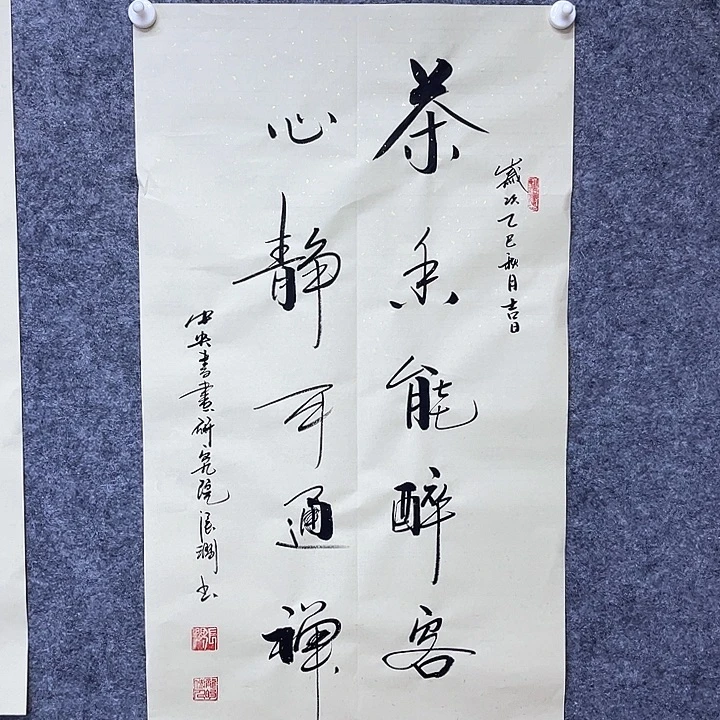 歲次乙巳秋月吉日
茶香能醉客
心静可通禅
中央書畫研究院張澗书